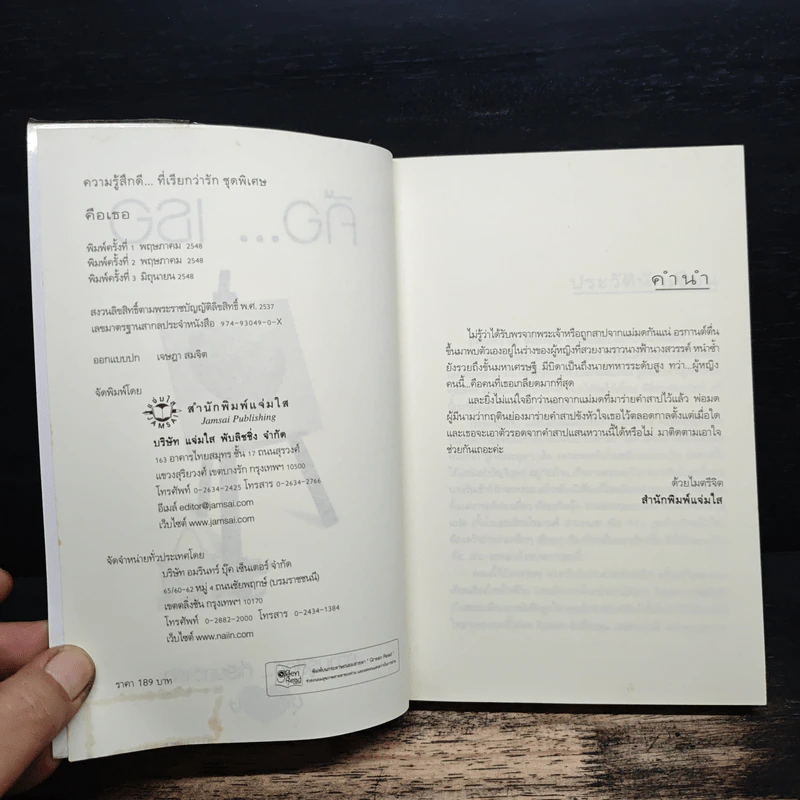 ความรู้สึกดี... ที่เรียกว่ารัก ชุดพิเศษ
คือเธอ
พิมพ์ครั้งที่ 1 พฤษภาคม 2548
พิมพ์ครั้งที่ 2 พฤษภาคม 2548
พิมพ์ครั้งที่ 3 มิถุนายน 2548
สงวนลิขสิทธิ์ตามพระราชบัญญัติลิขสิทธิ์ พ.ศ. 2537
เลขมาตรฐานสากลประจำหนังสือ 974-93049-0-X
ออกแบบปก เจษฎา สมจิต
จัดพิมพ์โดย
แจ่มใส
JAMSAI
สำนักพิมพ์แจ่มใส
Jamsai Publishing
บริษัท แจ่มใส พับลิชชิ่ง จำกัด
163 อาคารไทยสมุทร ชั้น 17 ถนนสุรวงศ์
แขวงสุริยวงศ์ เขตบางรัก กรุงเทพฯ 10500
โทรศัพท์ 0-2634-2425 โทรสาร 0-2634-2766
อีเมล์ editor@jamsai.com
เว็บไซต์ www.jamsai.com
จัดจำหน่ายทั่วประเทศโดย
บริษัท อมรินทร์ บุ๊ค เซ็นเตอร์ จำกัด
65/60-62 หมู่ 4 ถนนชัยพฤกษ์ (บรมราชชนนี)
เขตตลิ่งชัน กรุงเทพฯ 10170
โทรศัพท์ 0-2882-2000 โทรสาร 0-2434-1384
เว็บไซต์ www.naiin.com
ราคา 189 บาท
Green Read
พิมพ์บนกระดาษถนอมสายตา "Green Read"
คำนำ
ไม่รู้ว่าได้รับพรจากพระเจ้าหรือถูกสาปจากแม่มดกันแน่ อรกานต์ตื่น
ขึ้นมาพบตัวเองอยู่ในร่างของผู้หญิงที่สวยงามราวนางฟ้านางสวรรค์ หนำซ้ำ
ยังรวยถึงขั้นมหาเศรษฐี มีบิดาเป็นถึงนายทหารระดับสูง ทว่า...ผู้หญิง
คนนี้...คือคนที่เธอเกลียดมากที่สุด
และยิ่งไม่แน่ใจอีกว่านอกจากแม่มดที่มาร่ายคำสาปไว้แล้ว พ่อมด
ผู้มีนามว่ากฤตินย่องมาร่ายคำสาปขังหัวใจเธอไว้ตลอดกาลตั้งแต่เมื่อใด
และเธอจะเอาตัวรอดจากคำสาปแสนหวานนี้ได้หรือไม่ มาติดตามเอาใจ
ช่วยกันเถอะค่ะ
ด้วยไมตรีจิต
สำนักพิมพ์แจ่มใส